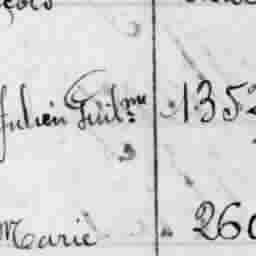 Julien Guil.me 1352
Marie 260